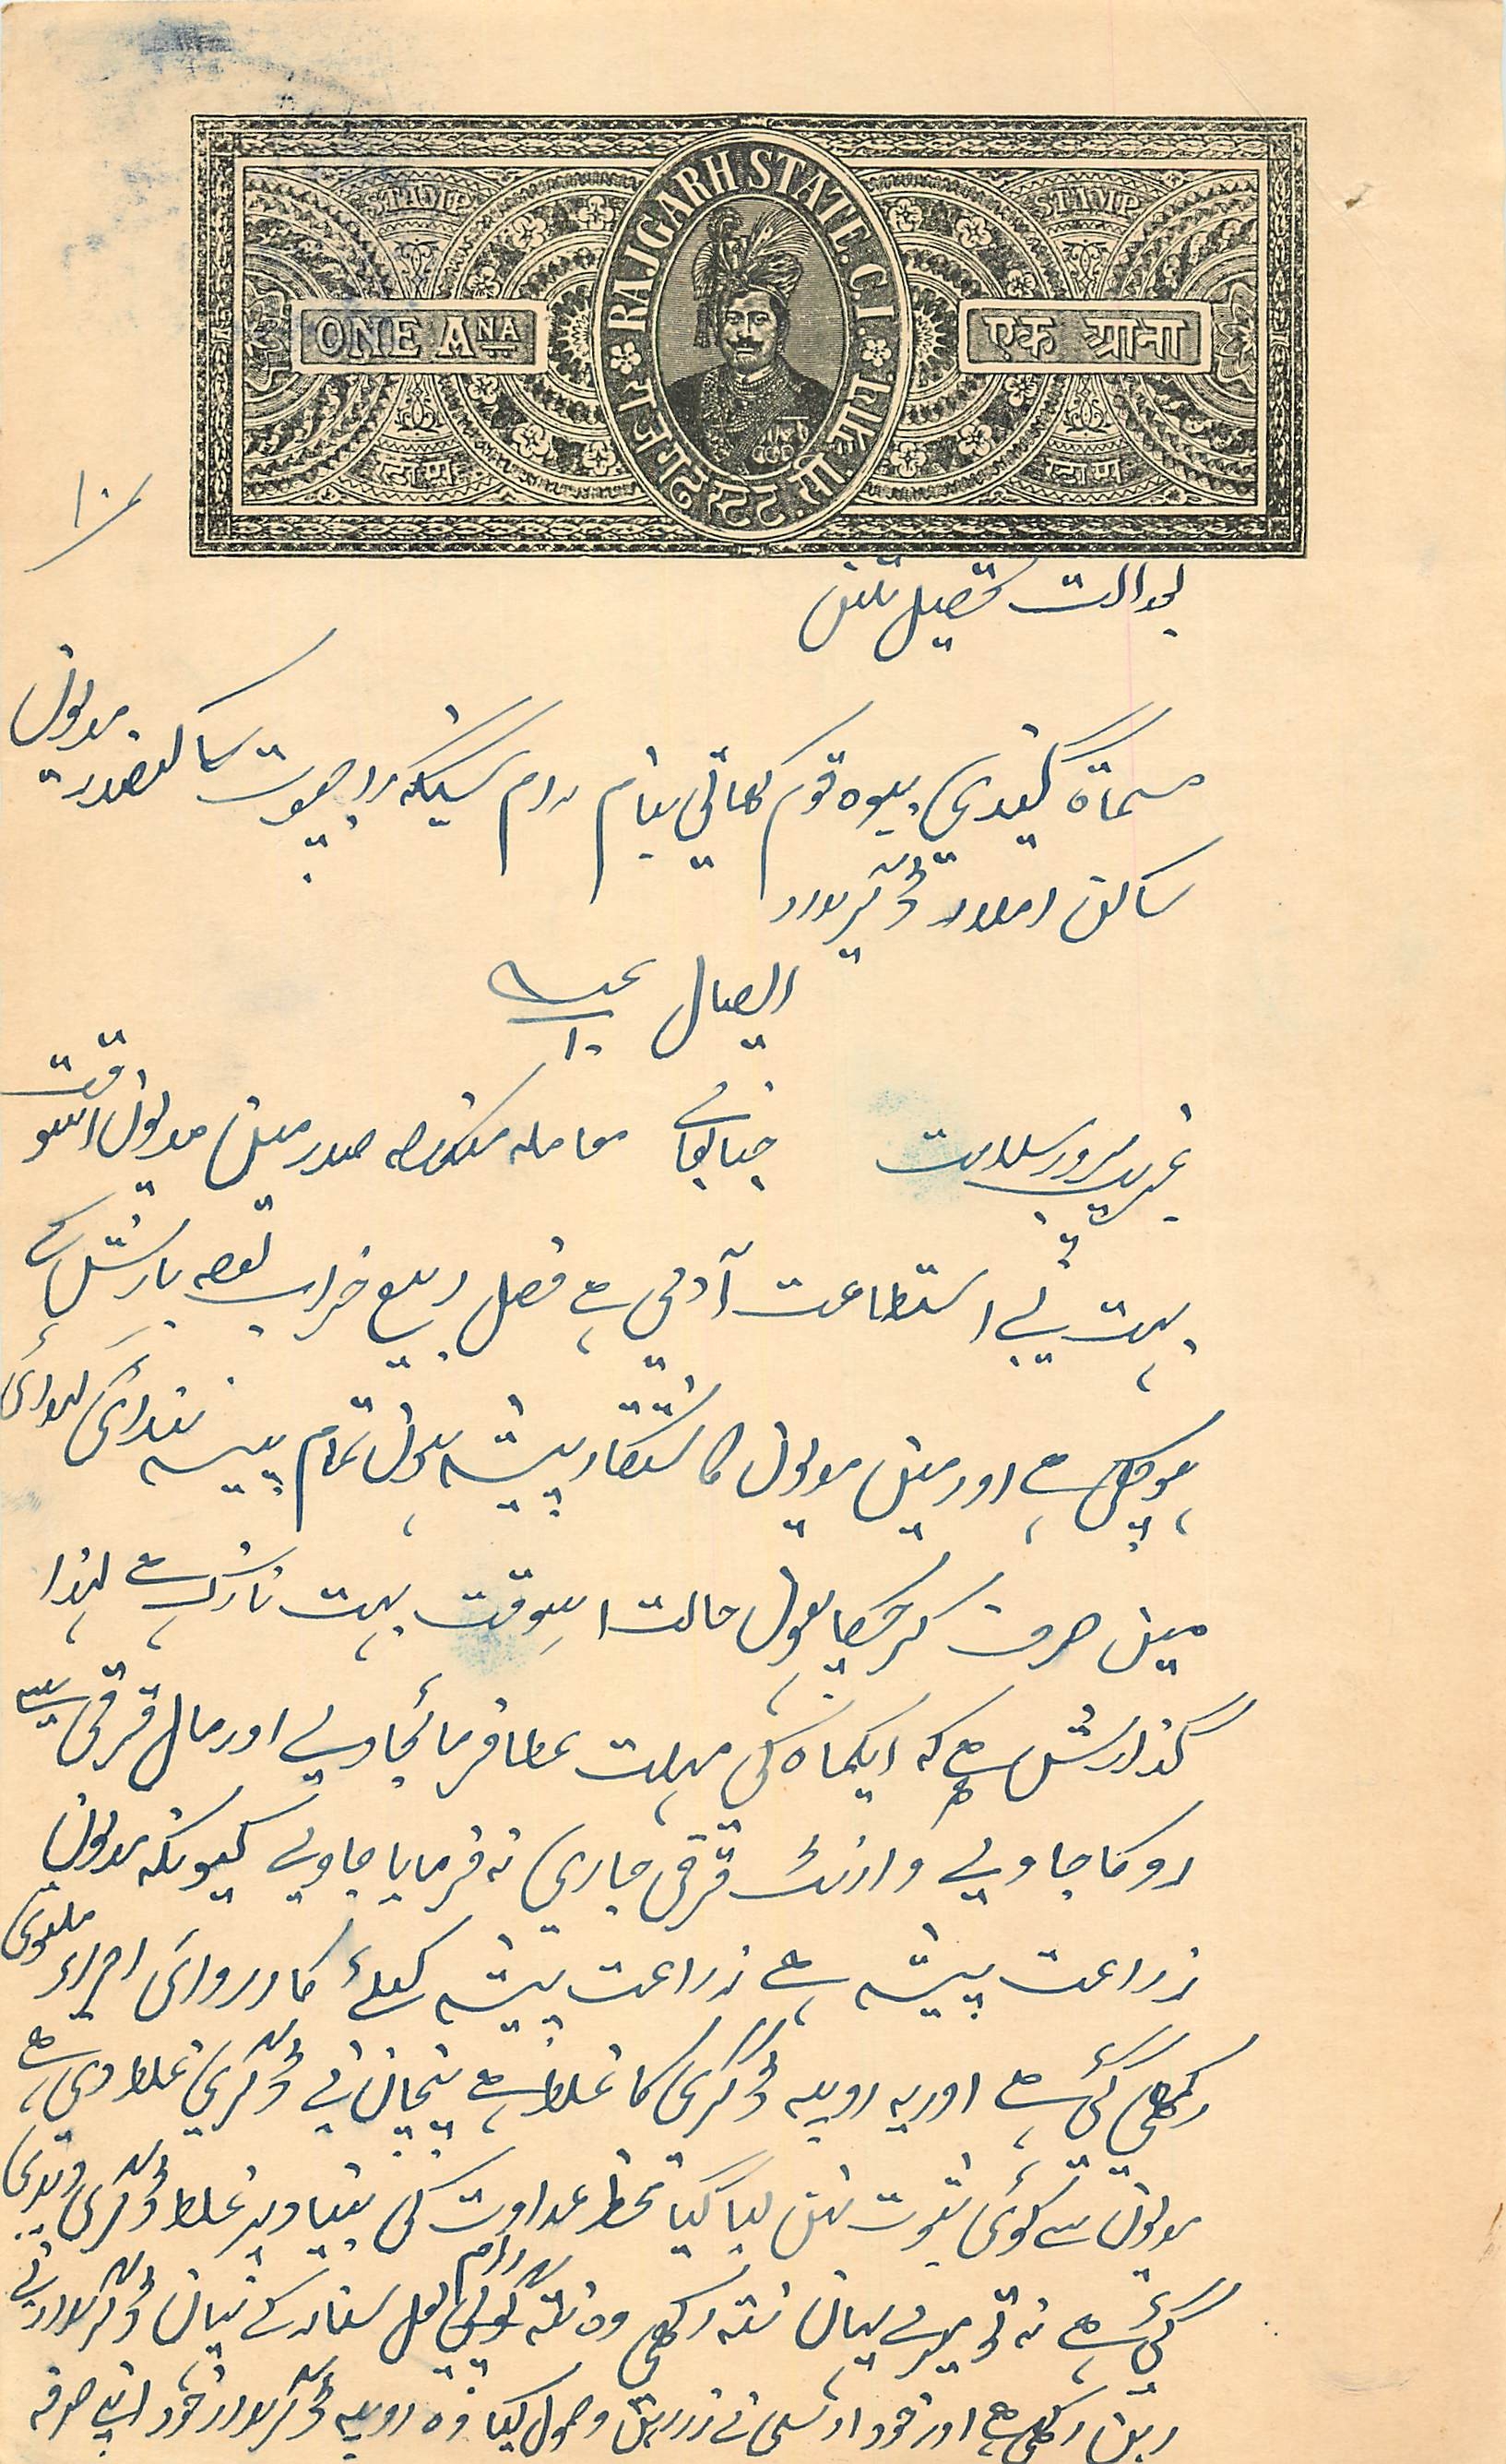 STAMP
STAMP
RAJGARH STATE. C. I.
ONE ANA
एक आना
राजगढ स्टेट. सी. आई.
स्टाम्प
स्टाम्प
بعدالت تحصیل تلین
مدیون
مسماۃ گیندی بیوہ قوم کھاتی بنام رام سنگہ راجپوت ساکنصدر
ساکن ڈگریدار
ایصال
۱۰
غریب پرور سلامت جنابعالی معاملہ مندرجہ صدر مین مدیون اسوقت
بہت بے استطاعت آدمی ہے فصل ربیع خراب بوجہ بارش کے
ہو چکی ہے اور مین مدیون کاشتکار پیشہ ہون تمام پیسہ
مین صرف کر چکا ہون حالت اسوقت بہت نازک ہے لہذا
گذارش ہے کہ ایکماہ کی مہلت عطا فرمائجاوے اور مال قرقی سے
روکا جاوے وارنٹ قرقی جاری نہ فرمایا جاوے کیونکہ مدیون
زراعت پیشہ ہے زراعت پیشہ کیلئے کارروائی اجراء ملتوی
رکھی گئی ہے اور یہ روپیہ ڈگری کا غلط ہے پنچان نے ڈگری غلط دی ہے
مدیون سے کوئی ثبوت نہین لیا گیا محظ عداوت کی بنیاد پر غلط ڈگری دیدی
گئی ہے نہ تو میرے یہان نتہ رکھی وہ نتہ لعل سنار کے یہان ڈگریدار نے
رہن رکھی ہے اور خود اوسی نے زررہن وصول کیا وہ روپیہ ڈگریدار خود اپنے صرفہ